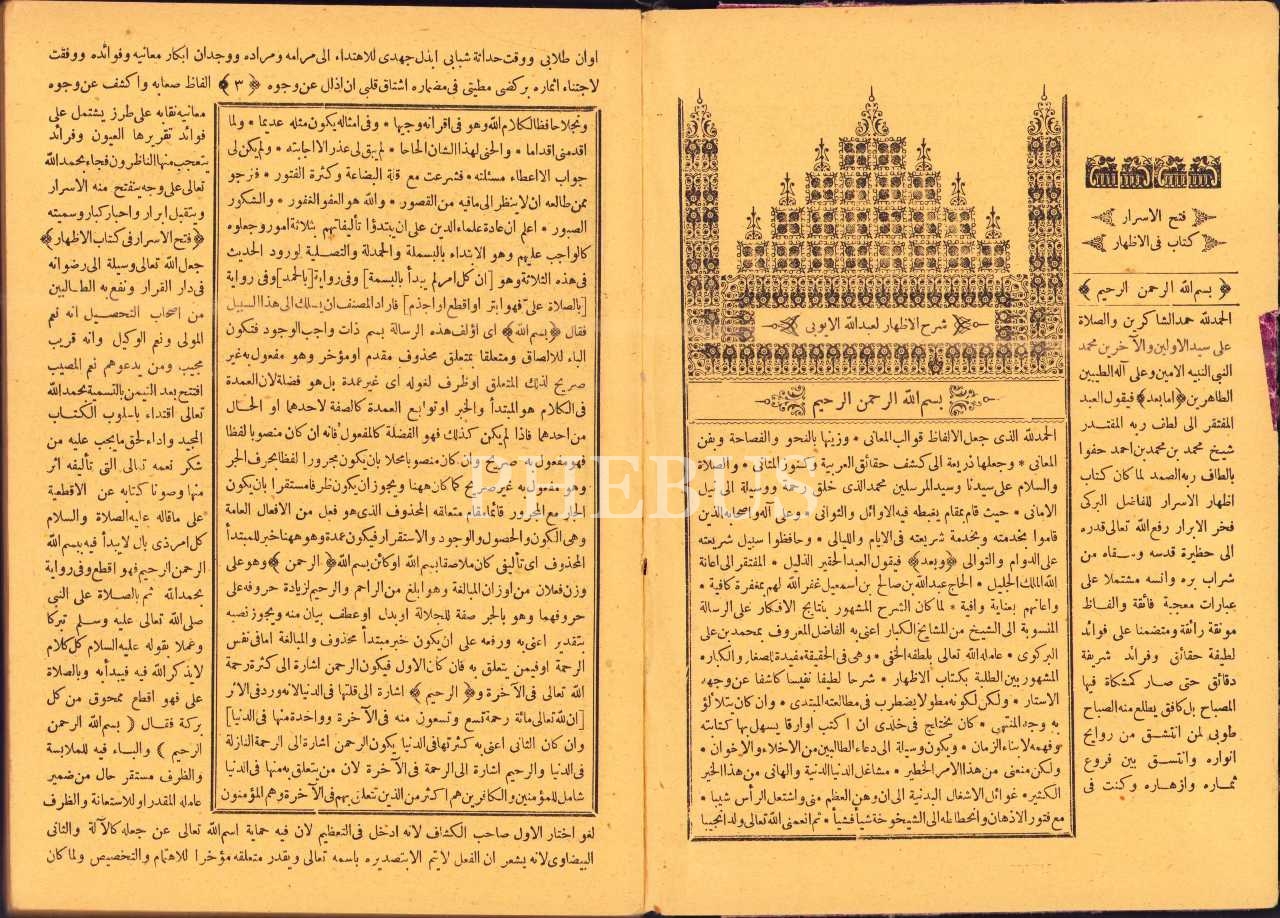 فتح الاسرار
كتاب فى الاظهار
﴿ بسم الله الرحمن الرحيم ﴾
الحمدلله حمد الشاكرين والصلاة
على سيد الاولين والآخرين محمد
النبى النبيه الامين وعلى آله الطيبين
الطاهرين ﴿ امابعد ﴾ فيقول العبد
المفتقر الى لطاف ربه المقتدر
شيخ محمد بن محمد بن احمد حفوا
بالطاف ربه الصمد لما كان كتاب
اظهار الاسرار للفاضل البركى
فخر الابرار رفع الله تعالى قدره
الى حظيرة قدسه وسقاه من
شراب بره وانسه مشتملا على
عبارات معجبة فائقة والفاظ
مونقة رائقة ومتضمنا على فوائد
لطيفة حقائق وفرائد شريفة
دقائق حتى صار كمشكاة فيها
المصباح بل كافق يطلع منه الصباح
طوبى لمن انتشق من روايح
انواره واتسق بين فروع
ثماره وازهاره وكنت فى
شرح الاظهار لعبدالله الايوبى
بسم الله الرحمن الرحيم
الحمدلله الذى جعل الالفاظ قوالب المعانى * وزينها بالنحو والفصاحة وبفن
المعانى * وجعلها ذريعة الى كشف حقائق العربية وكنوز المثانى * والصلاة
والسلام على سيدنا وسيد المرسلين محمد الذى خلق رحمة ووسيلة الى نيل
الامانى * حيث قام بمقام يغبطه فيه الاوائل والثوانى * وعلى آله واصحابه الذين
قاموا بخدمته وبخدمة شريعته فى الايام والليالى * وحافظوا سبيل شريعته
على الدوام والتوالى ﴿ وبعد ﴾ فيقول العبد الحقير الذليل * المفتقر الى اعانة
الله الملك الجليل * الحاج عبدالله بن صالح بن اسمعيل غفر الله لهم بمغفرة كافية *
واعانهم بعناية وافية * لما كان الشرح المشهور بنتايج الافكار على الرسالة
المنسوبة الى الشيخ من المشايخ الكبار اعنى به الفاضل المعروف بمحمد بن على
البركوى * عامله الله تعالى بلطفه الخفى * وهى فى الحقيقة مفيدة للصغار والكبار *
المشهور بين الطلبة بكتاب الاظهار * شرحا لطيفا نفيسا كاشفا عن وجهه
الاستار * ولكن لكونه مطولا يضطرب فى مطالعته المبتدى * وان كان يتلألؤ
به وجه المنتهى * كان يختاج فى خلدى ان اكتب اوراقا يسهل بها كتابته
وفهمه لابناء الزمان * ويكون وسيلة الى دعاء الطالبين من الاخلاء والاخوان *
ولكن منعنى من هذا الامر الخطير * مشاغل الدنيا الدنية والهانى من هذا الخير
الكثير * غوائل الاشغال البدنية الى ان وهن العظم منى واشتعل الرأس شيبا *
مع فتور الاذهان وانحطاطه الى الشيخوخة شيأ فشيأ * ثم انعمنى الله تعالى ولدا نجيبا
اوان طلابى ووقت حداثة شبابى ابذل جهدى للاهتداء الى مرامه ومراده ووجدان ابكار معانيه وفوائده ووفقت
لاجتناء اثماره بركضى مطيتى فى مضماره اشتاق قلبى ان اذلل عن وجوه ﴿ ٣ ﴾ الفاظ صعابه واكشف عن وجوه
معانيه نقابه على طرز يشتمل على
فوائد تقريرها العيون وفرائد
يتعجب منها الناظرون فجاء بحمد الله
تعالى على وجه ينفتح منه الاسرار
ويتقيل ابرار واحبار كبار وسميته
﴿ فتح الاسرار فى كتاب الاظهار ﴾
جعل الله تعالى وسيلة الى رضوانه
فى دار القرار ونفع به الطالبين
من اصحاب التحصيل انه نعم
المولى ونعم الوكيل وانه قريب
مجيب ومن يدعوهم نعم المصيب
افتتح بعد التيمن بالتسمية بحمد الله
تعالى اقتداء باسلوب الكتاب
المجيد واداء لحق ما يجب عليه من
شكر نعمه تعالى التى تأليفه اثر
منها وصونا كتابه عن الاقطعية
على ماقاله عليه الصلاة والسلام
كل امر ذى بال لا يبدأ فيه ببسم الله
الرحمن الرحيم فهو اقطع وفى رواية
بحمد الله ثم بالصلاة على النبى
صلى الله تعالى عليه وسلم تبركا
وعملا بقوله عليه السلام كل كلام
لا يذكر الله فيه فيبدأ به وبالصلاة
على فهو اقطع ممحوق من كل
بركة فقال ( بسم الله الرحمن
الرحيم ) والباء فيه للملابسة
والظرف مستقر حال من ضمير
عامله المقدر او للاستعانة والظرف
ونجلا حافظا لكلام الله وهو فى اقرانه وجيها * وفى امثاله يكون مثله عديما * ولما
اقدمنى اقداما * والحنى لهذا الشان الحاحا * لم يبق لى عذر الا اجابته * ولم يكن لى
جواب الا اعطاء مسئلته * فشرعت مع قلة البضاعة وكثرة الفتور * فنرجو
ممن طالعه ان لا ينظر الى ما فيه من القصور * والله هو العفو الغفور * والشكور
الصبور * اعلم ان عادة علماء الدين على ان يبتدؤا تأليفاتهم بثلاثة امور وجعلوه
كالواجب عليهم وهو الابتداء بالبسملة والحمدلة والتصلية لورود الحديث
فى هذه الثلاثة وهو [ ان كل امر لم يبدأ بالبسمة ] وفى رواية [ بالحمد ] وفى رواية
[ بالصلاة على فهو ابتر او اقطع او اجذم ] فاراد المصنف ان يسلك الى هذا السبيل
فقال ﴿ بسم الله ﴾ اى اؤلف هذه الرسالة بسم ذات واجب الوجود فتكون
الباء للالصاق ومتعلقا بمتعلق محذوف مقدم او مؤخر وهو مفعول به غير
صريح لذلك المتعلق او ظرف لغوله اى غير عمدة بل هو فضلة لان العمدة
فى الكلام هو المبتدأ والخبر او توابع العمدة كالصفة لاحدهما او الحال
من احدهما فاذا لم يكن كذلك فهو الفضلة كالمفعول فانه ان كان منصوبا لفظا
فهو مفعول به صريح وان كان منصوبا محلا بان يكون مجرورا لفظا بحرف الجر
وهو مفعول به غير صريح كما كان ههنا ويجوز ان يكون ظرفا مستقرا بان يكون
الجار مع المجرور قائما مقام متعلقه المحذوف الذى هو فعل من الافعال العامة
وهى الكون والحصول والوجود والاستقرار فيكون عمدة وهو ههنا خبر للمبتدأ
المحذوف اى تأليفى كان ملاصقا ببسم الله او كائن بسم الله ﴿ الرحمن ﴾ وهو على
وزن فعلان من اوزان المبالغة وهو ابلغ من الراحم والرحيم لزيادة حروفه على
حروفهما وهو بالجر صفة للجلالة او بدل او عطف بيان منه ويجوز نصبه
بتقدير اعنى به ورفعه على ان يكون خبر مبتدأ محذوف والمبالغة اما فى نفس
الرحمة او فيمن يتعلق به فان كان الاول فيكون الرحمن اشارة الى كثرة رحمة
الله تعالى فى الآخرة و﴿ الرحيم ﴾ اشارة الى قلتها فى الدنيا لانه ورد فى الاثر
[ ان لله تعالى مائة رحمة تسع وتسعون منه فى الآخرة وواحدة منها فى الدنيا ]
وان كان الثانى اعنى به كثرتها فى الدنيا يكون الرحمن اشارة الى الرحمة النازلة
فى الدنيا والرحيم اشارة الى الرحمة فى الآخرة لان من يتعلق به منها فى الدنيا
شامل للمؤمنين والكافرين هم اكثر من الذين تتعلق بهم فى الآخرة وهم المؤمنون
لغو اختار الاول صاحب الكشاف لانه ادخل فى التعظيم لان فيه حماية اسم الله تعالى عن جعله كالآلة والثانى
البيضاوى لانه يشعر ان الفعل لا يتم الا بتصديره باسمه تعالى ويقدر متعلقه مؤخرا للاهتمام والتخصيص ولما كان
PHEBUS